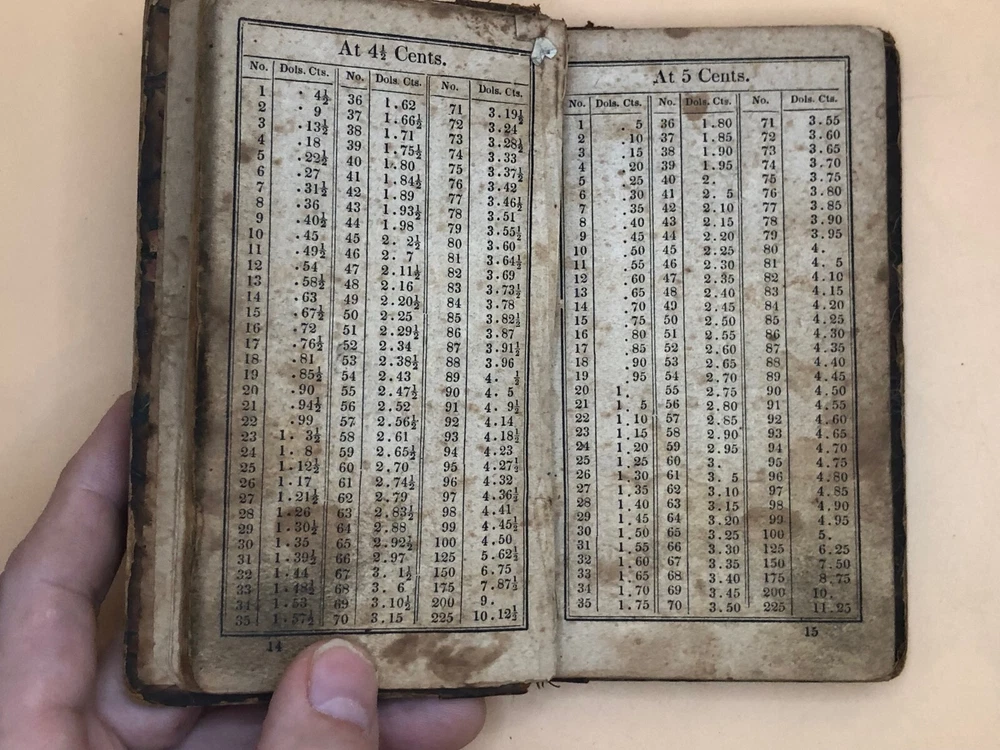 At 4½ Cents.
No. Dols. Cts. No. Dols. Cts. No. Dols. Cts.
1 . 4½ 36 1.62 71 3.19½
2 . 9 37 1.66½ 72 3.24
3 .13½ 38 1.71 73 3.28½
4 .18 39 1.75½ 74 3.33
5 .22½ 40 1.80 75 3.37½
6 .27 41 1.84½ 76 3.42
7 .31½ 42 1.89 77 3.46½
8 .36 43 1.93½ 78 3.51
9 .40½ 44 1.98 79 3.55½
10 .45 45 2. 2½ 80 3.60
11 .49½ 46 2. 7 81 3.64½
12 .54 47 2.11½ 82 3.69
13 .58½ 48 2.16 83 3.73½
14 .63 49 2.20½ 84 3.78
15 .67½ 50 2.25 85 3.82½
16 .72 51 2.29½ 86 3.87
17 .76½ 52 2.34 87 3.91½
18 .81 53 2.38½ 88 3.96
19 .85½ 54 2.43 89 4. ½
20 .90 55 2.47½ 90 4. 5
21 .94½ 56 2.52 91 4. 9½
22 .99 57 2.56½ 92 4.14
23 1. 3½ 58 2.61 93 4.18½
24 1. 8 59 2.65½ 94 4.23
25 1.12½ 60 2.70 95 4.27½
26 1.17 61 2.74½ 96 4.32
27 1.21½ 62 2.79 97 4.36½
28 1.26 63 2.83½ 98 4.41
29 1.30½ 64 2.88 99 4.45½
30 1.35 65 2.92½ 100 4.50
31 1.39½ 66 2.97 125 5.62½
32 1.44 67 3. 1½ 150 6.75
33 1.48½ 68 3. 6 175 7.87½
34 1.53 69 3.10½ 200 9.
35 1.57½ 70 3.15 225 10.12½
14
At 5 Cents.
No. Dols. Cts. No. Dols. Cts. No. Dols. Cts.
1 . 5 36 1.80 71 3.55
2 .10 37 1.85 72 3.60
3 .15 38 1.90 73 3.65
4 .20 39 1.95 74 3.70
5 .25 40 2. 75 3.75
6 .30 41 2. 5 76 3.80
7 .35 42 2.10 77 3.85
8 .40 43 2.15 78 3.90
9 .45 44 2.20 79 3.95
10 .50 45 2.25 80 4.
11 .55 46 2.30 81 4. 5
12 .60 47 2.35 82 4.10
13 .65 48 2.40 83 4.15
14 .70 49 2.45 84 4.20
15 .75 50 2.50 85 4.25
16 .80 51 2.55 86 4.30
17 .85 52 2.60 87 4.35
18 .90 53 2.65 88 4.40
19 .95 54 2.70 89 4.45
20 1. 55 2.75 90 4.50
21 1. 5 56 2.80 91 4.55
22 1.10 57 2.85 92 4.60
23 1.15 58 2.90 93 4.65
24 1.20 59 2.95 94 4.70
25 1.25 60 3. 95 4.75
26 1.30 61 3. 5 96 4.80
27 1.35 62 3.10 97 4.85
28 1.40 63 3.15 98 4.90
29 1.45 64 3.20 99 4.95
30 1.50 65 3.25 100 5.
31 1.55 66 3.30 125 6.25
32 1.60 67 3.35 150 7.50
33 1.65 68 3.40 175 8.75
34 1.70 69 3.45 200 10.
35 1.75 70 3.50 225 11.25
15